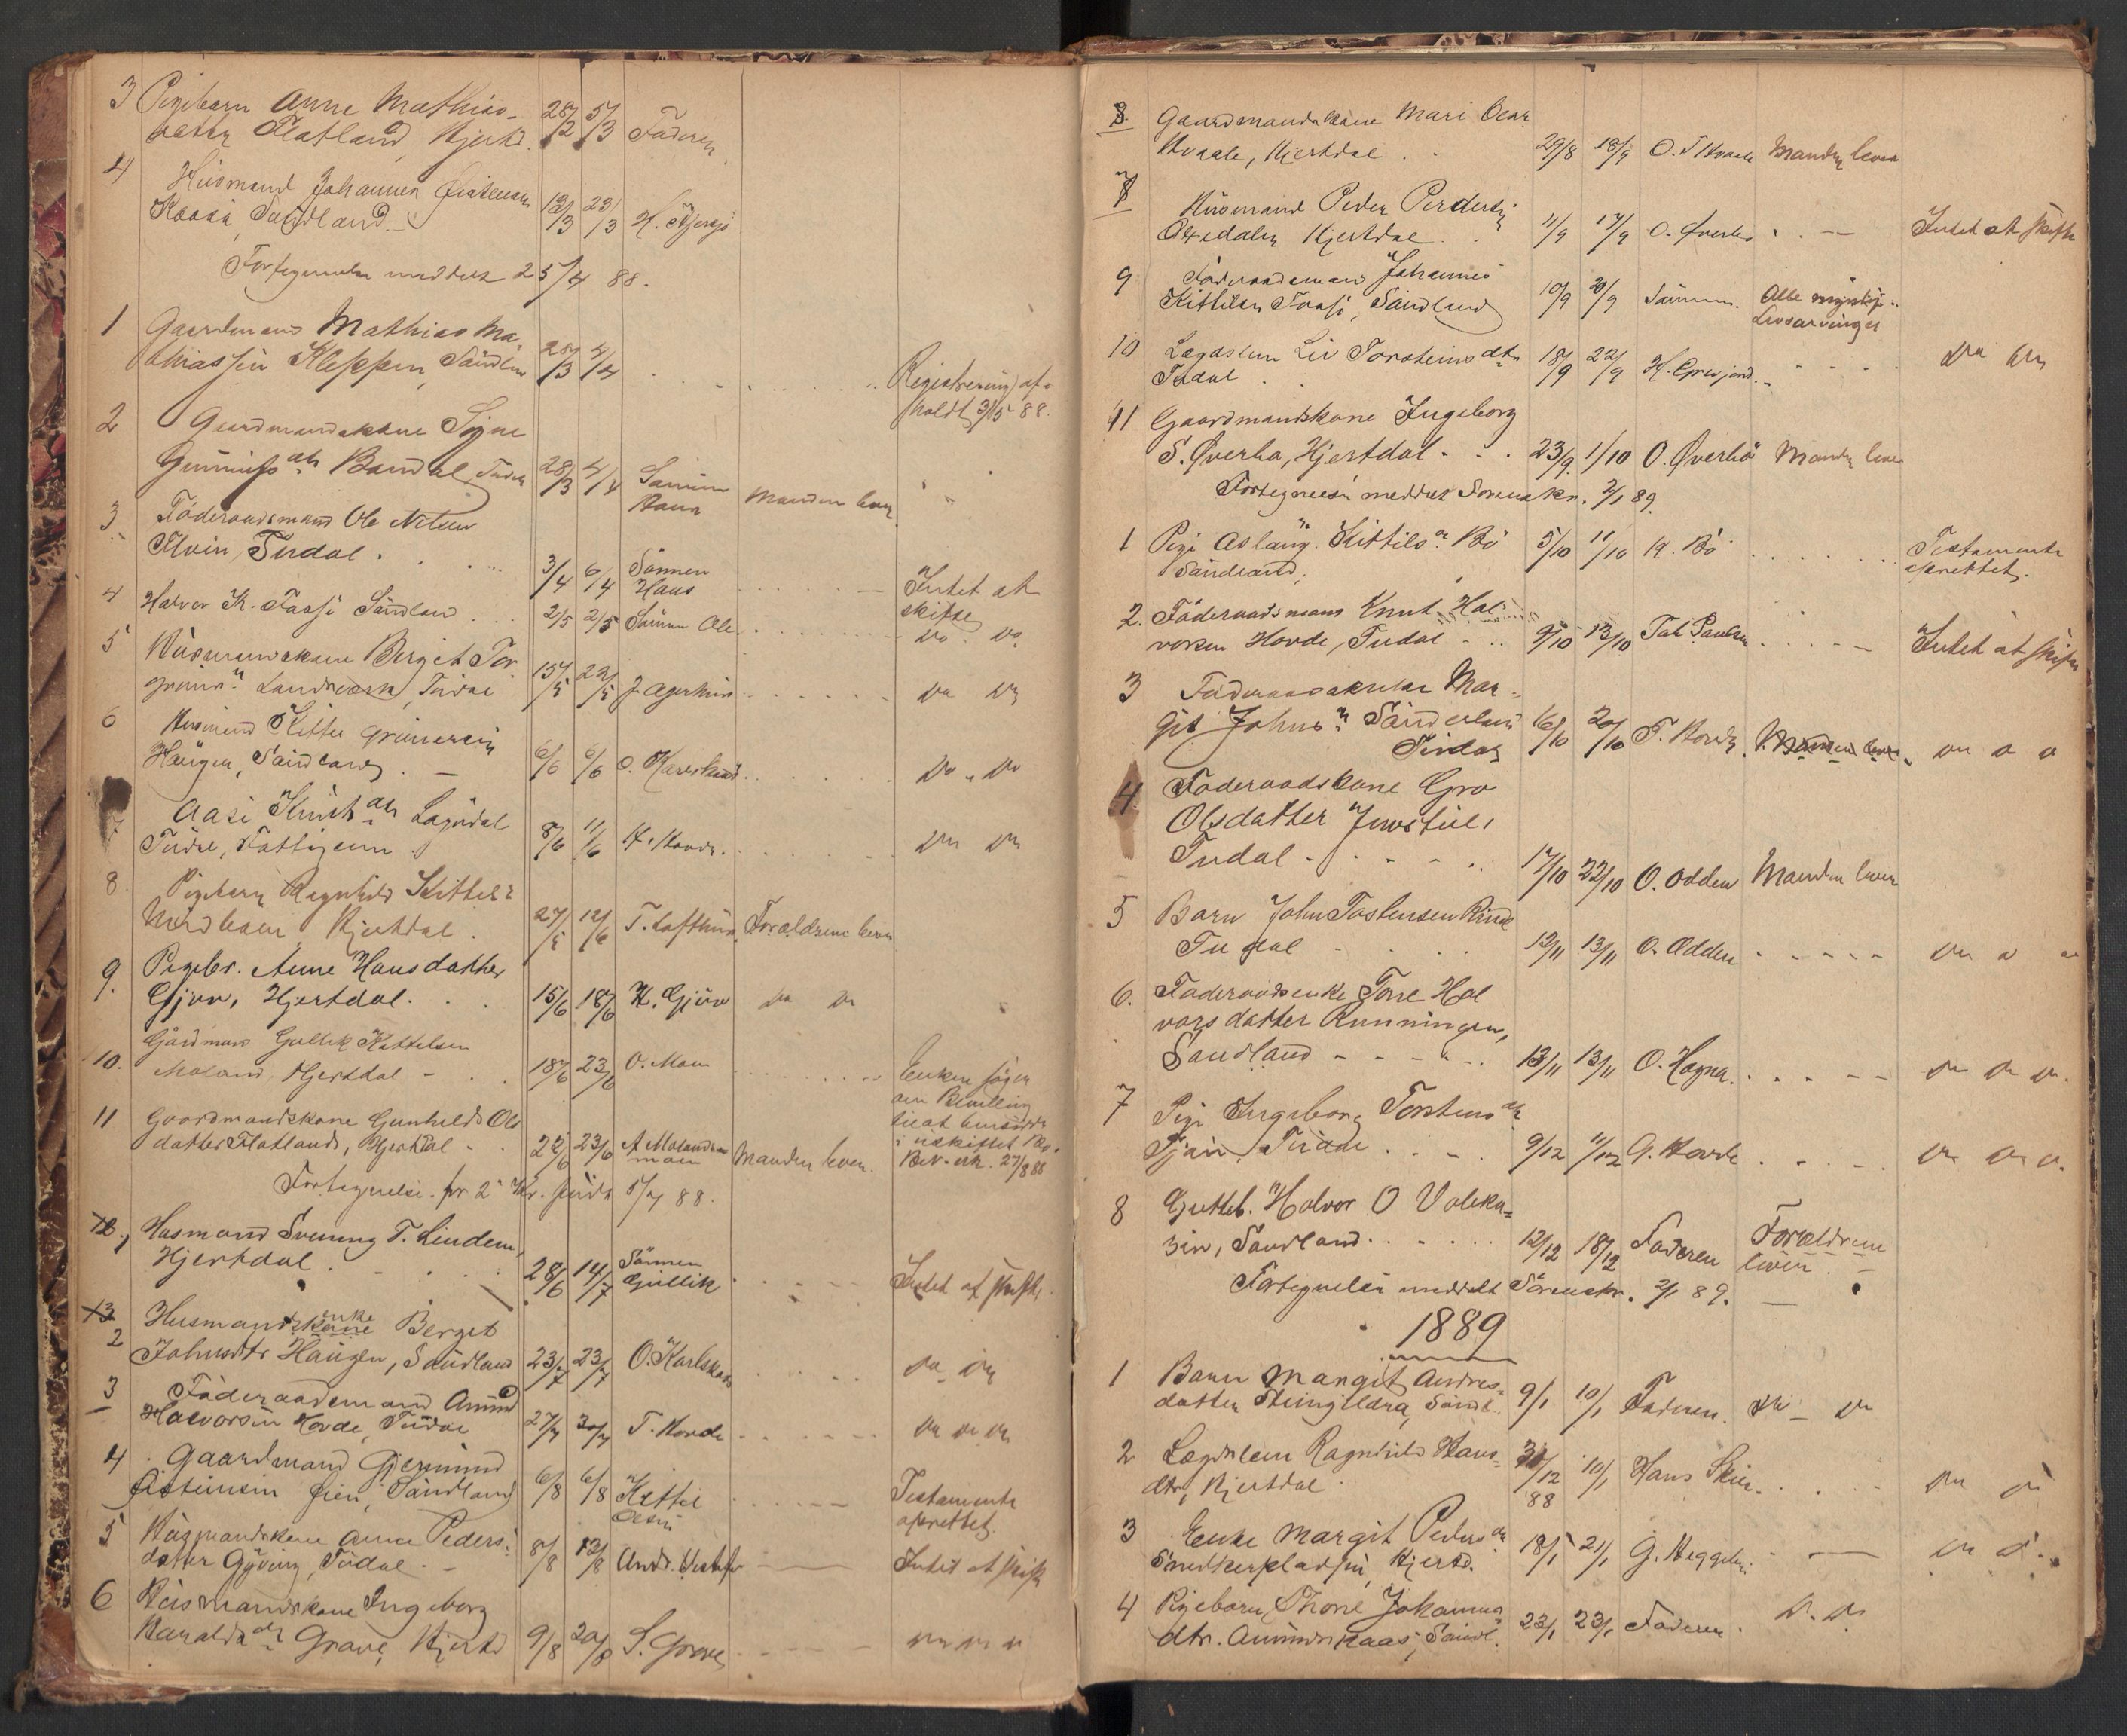 3 Pigebarn Anne Mathias-
datter Flatland, Hjertd. 28/2 5/3 Faderen
4 Husmand Johannes Øistensen
Kaasa, Sauland. 19/3 23/3 H.
Fortegnelse meddelt 25/4 88.
1 Gaardmand Mathias Ma-
thiassen Kleppen, Saudland 28/3 4/4 Registrering af-
holdt 3/5 88.
2 Gaardmandskone Signe
Gunnulfs dtr Bondal, Tudal 28/3 4/4 Sønnen Manden lever
3 Föderaadsmand Ole Nilsen
Tudal. 3/4 6/4 Sønnen
Hans Intet at
skifte
4 Halvor K. Faasi Saudland 2/5 2/5 Sønnen Ole Do Do
5 Husmandskone Berget Tor-
grims dtr Landsverk, Tudal 15/5 22/5 J. Do Do
6 Husmand Kittil Grimesen
Haugen, Saudland 6/6 6/6 O. Karlskaas Do " Do
7 Aase Knuts dtr Lagudal
Tudal, Fattiglem 8/6 11/6 H. Hovde. Do Do
8 Pigebarn Ragnhild Kittels
Hjertdal. 27/5 12/6 T. Lofthus Forældrene lever
9. Pigebr. Anne Hansdatter
Gjuv, Hjertdal. 15/6 18/6 H. Gjuv Do Do
Gårdmand Gullik Kittelsen
10. Moland, Hjertdal 18/6 23/6 O. Moen Enken søger
om Bevilling
til at hensidde
i uskiftet Bo.
Bev. erh. 27/8 88
11 Gaardmandskone Gunhild Ols
datter Flatland, Hjertdal 22/6 23/6 A Molandsmoen Manden lever.
Fortegnelse for 2det Kv. sendt 5/7 88.
12., Husmand Svenung T. Linden,
Hjertdal. 28/6 14/7 Sønnen
Gullik Intet at skifte.
13 Husmandsenke Berget
2 Johnsdtr Haugen, Saudland 23/7 23/7 O. Karlskaas Do Do
3 Föderaadsmand Amund
Halvorsen Hovde, Tudal 27/7 30/7 T. Hovde Do Do Do
4 Gaardmand Gjermund
Øisteinsen Øien, Saudland 6/8 6/8 Kittil
Olsen Testamente
oprettet.
5 Husmandskone Anne Peders-
datter Gøving, Tudal. 8/8 13/8 Andr. Intet at skifte
6 Husmandskone Ingeborg
Haralds dtr Grave, Hjertd 9/8 20/8 S. Grave Do Do Do
8 Gaardmandskone Mari
Hvaale, Hjertdal 29/8 18/9 O. T Hvaale Manden lever
7 Husmand Peder Pedersen
Hjertdal. 11/9 17/9 O. Øverbø Intet at skifte
9 Föderaadsmand Johannes
Kittilsen Faasi, Saudland 10/9 20/9 Sønnen. Alle myndige
Livsarvinger
10 Lægdslem Liv Torsteins dtr
Tudal 18/9 22/9 H. Do Do
11 Gaardmandskone Ingeborg
S. Øverbø, Hjertdal. 23/9 1/10 O. Øverbö Manden lever
Fortegnelse meddelt Sorenskr. 2/1 89.
1 Pige Aslaug Kittils dr. Bö
Saudland. 5/10 11/10 K. Bö Testamente
oprettet.
2. Föderaadsmand Knut Hal-
vorsen Hovde, Tudal 9/10 13/10 Tal. Paulsen Intet at skifte
3 Föderaadskone Mar-
git Johns dr Sønderland
Tudal 16/10 20/10 T. Hovde. Manden lever Do Do Do
4. Föderaadskone Gro
Olsdatter Juvstul,
Tudal. 17/10 22/10 O. Odden Manden lever
5 Barn John Tostensen Rinde
Tudal 12/11 13/11 O. Odden Do Do Do
6. Föderaadsenke Tone Hal
vorsdatter Runningen,
Saudland 13/11 13/11 O. Hagna. Do Do Do.
7 Pige Ingeborg Torstens dtr
Tjøn, Tudal 9/12 11/12 G. Hovde Do Do Do.
8 Guttebr. Halvor O Valeka-
sen, Saudland. 12/12 18/12 Faderen Forældrene
lever.
Fortegnelse meddelt Sorenskr. 2/1 89.
1889
1 Barn Margit Andres-
datter Saudl. 9/1 10/1 Faderen. Do Do
2 Lægdslem Ragnhild Hans-
dtr, Hjertdal 30/12
88 10/1 Hans Do Do
3 Enke Margit Peders dr
Snedkerpladsen, Hjertd. 18/1 21/1 G. Heggelien Do Do
4 Pigebarn Thone Johannes-
dtr. Amundskaas, Saudl. 22/1 23/1 Faderen. Do. Do